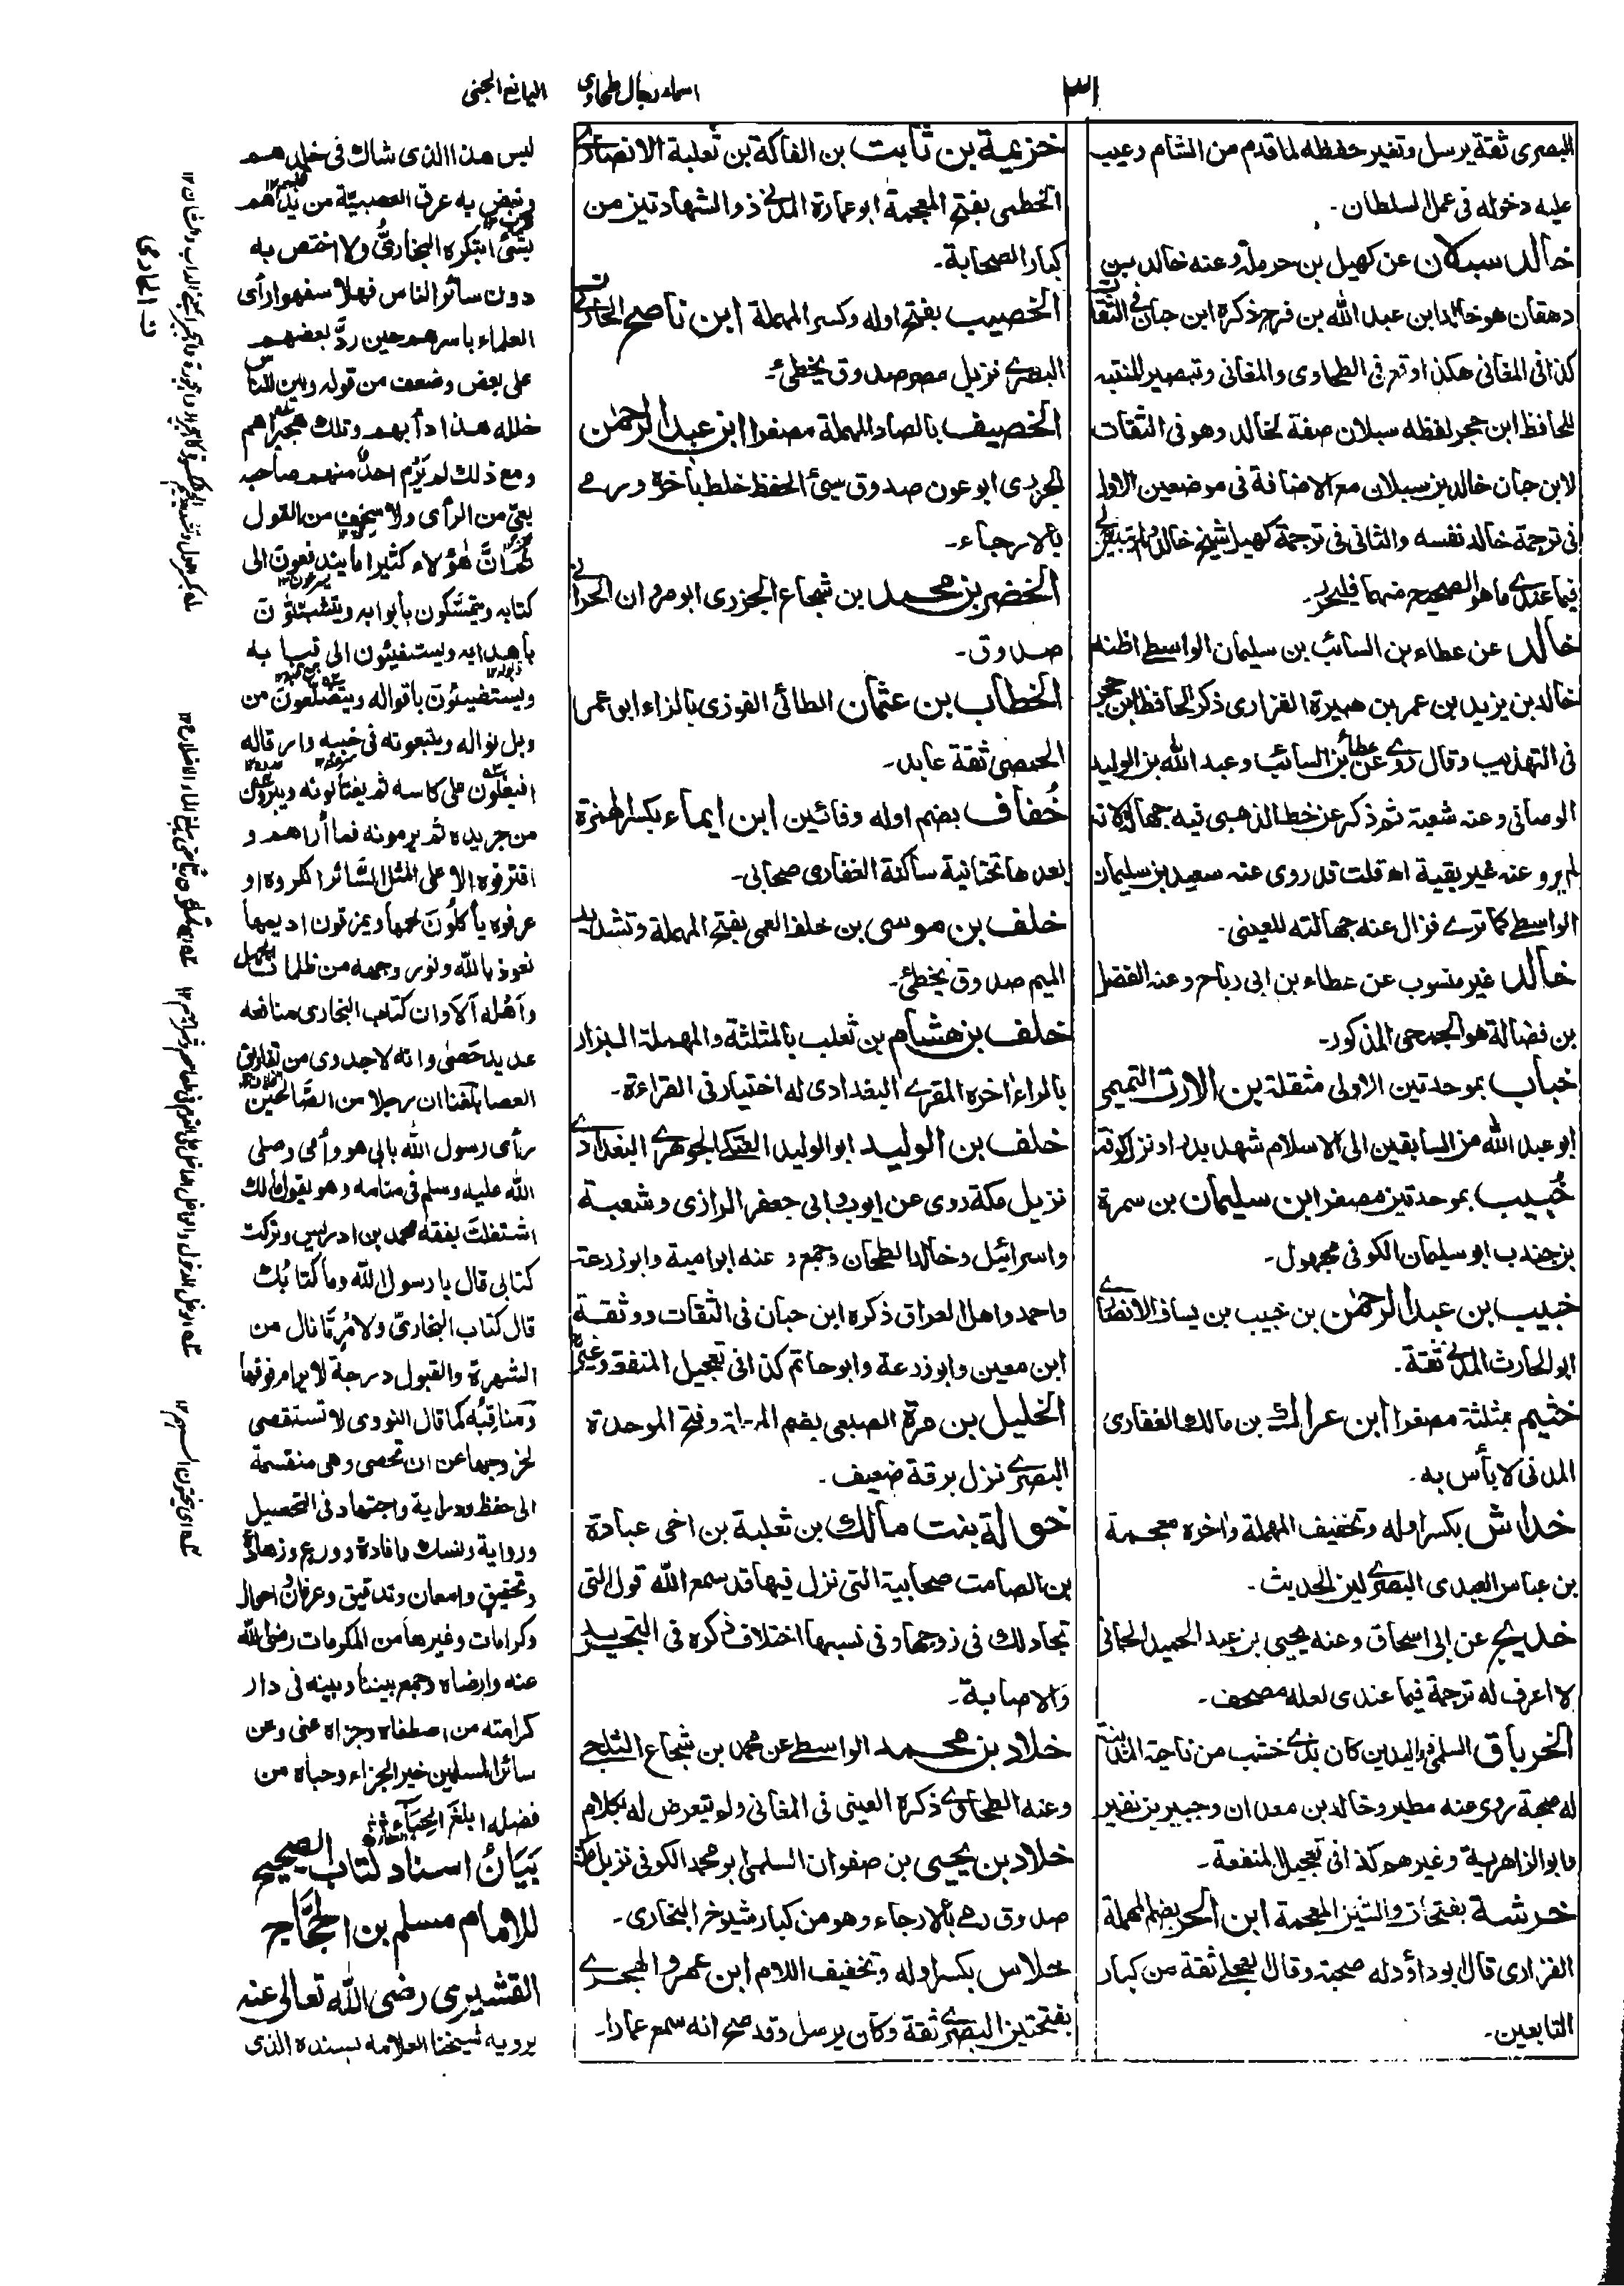 ٣١
اسماء رجال طحاوی
اليانع الجنى
البصرى ثقة يرسل وتغير حفظه لما قدم من الشام وعيب
عليه دخوله فى عمل السلطان۔
خالد سبلان عن كهيل بن حرملة وعنه خالد بن
دهقان هو خالد ابن عبد الله بن فرج ذكره ابن حبان فى الثقات
كذا فى المغانى هكذا وقع فى الطحاوى والمغانى وتبصير المنتبه
للحافظ ابن حجر لفظه سبلان صفة لخالد وهو فى الثقات
لابن حبان خالد بن سبلان مع الاضافة فى موضعين الاول
فى ترجمة خالد نفسه والثانى فى ترجمة كهيل شيخ خالد ولم يتبين لے
فيما عندے ما هو الصحيح منهما فليحرر۔
خالد عن عطاء بن السائب بن سليمان الواسطے اظنه
خالد بن يزيد بن عمر بن هبيرة الفزارى ذكر الحافظ ابن حجر
فى التهذيب وقال روے عن عطاء بن السائب وعبد الله بن الوليد
الوصافى وعنه شعبة ثم ذكر عن خط الذهبى فيه جهالة لانه
لم يرو عنه غير بقية اه قلت قد روى عنه سعيد بن سليمان
الواسطے كما ترے فزال عنه جهالته للعينى۔
خالد غير منسوب عن عطاء بن ابى رباح وعنه الفضل
بن فضالة هو الجمحى المذكور۔
خباب بموحدتين الاولى مثقلة بن الارت التميمى
ابو عبد الله من السابقين الى الاسلام شهد بدرا ونزل الكوفة
خُبيب بموحدتين مصغرا بن سليمان بن سمرة
بن جندب ابو سليمان الكوفى مجهول۔
خبيب بن عبد الرحمٰن بن خبيب بن يساف الانصارے
ابو الحارث المدنى ثقة۔
خثيم بمثلثة مصغرا ابن عراك بن مالك الغفارى
المدنى لا بأس به۔
خداش بكسر اوله وتخفيف المهملة واخره معجمة
بن عباس العبدى البصرے لين الحديث۔
خديج عن ابى اسحاق وعنه يحيى بن عبد الحميد الحمانى
لا اعرف له ترجمة فيما عندى لعله مصحف۔
الخرباق السلمى ذو اليدين كان بذے خشب من ناحية المدينة
له صحبة روى عنه مطير وخالد بن معدان وجبير بن نفير
وابو الزاهرية وغيرهم كذا فى تعجيل المنفعة۔
خرشة بفتحات والشين المعجمة ابن الحر بضم المهملة
الفزارى قال ابو داؤد له صحبة وقال العجلے ثقة من كبار
التابعين۔
خزيمة بن ثابت بن الفاكة بن ثعلبة الانصارے
الخطمى بفتح المعجمة ابو عمارة المدنى ذو الشهادتين من
كبار الصحابة۔
الخصيب بفتح اوله وكسر المهملة ابن ناصح الحارثى
البصرے نزيل مصر صدوق يخطئ۔
الخصيف بالصاد المهملة مصغرا ابن عبد الرحمٰن
الجزرى ابو عون صدوق سيئ الحفظ خلط بأخره ورمے
بالارجاء۔
الخضر بن محمد بن شجاع الجزرى ابو مروان الحرانى
صدوق۔
الخطاب بن عثمان الطائى الفوزى بالزاء ابو عمر
الحمصى ثقة عابد۔
خُفاف بضم اوله وفائين ابن ايماء بكسر الهمزة
بعدها تحتانية ساكنة الغفارى صحابى۔
خلف بن موسى بن خلف العمى بفتح المهملة وتشديد
الميم صدوق يخطئ۔
خلف بن هشام بن ثعلب بالمثلثة والمهملة البزار
بالراء اخره المقرے البغدادى له اختيار فى القراءة۔
خلف بن الوليد ابو الوليد العتكے الجوهرے البغدادے
نزيل مكة روى عن ايوب وابى جعفر الرازى وشعبة
واسرائيل وخالد الطحان وجمع وعنه ابو امية وابو زرعة
واحمد واهل العراق ذكره ابن حبان فى الثقات ووثقه
ابن معين وابو زرعة وابو حاتم كذا فى تعجيل المنفعة وغيره
الخليل بن مرة الضبعى بضم المعجمة وفتح الموحدة
البصرے نزل برقة ضعيف۔
خوالة بنت مالك بن ثعلبة بن اخى عبادة
بن الصامت صحابية التى نزل فيها قد سمع الله قول التى
تجادلك فى زوجها وفى نسبها اختلاف ذكره فى التجريد
والاصابة۔
خلاد بن محمد الواسطے عن محمد بن شجاع الثلجے
وعنه الطحاوے ذكره العينى فى المغانى ولم يتعرض له بكلام
خلاد بن يحيى بن صفوان السلمى ابو محمد الكوفى نزيل مكة
صدوق رمے بالارجاء وهو من كبار شيوخ البخارى۔
خلاس بكسر اوله وتخفيف اللام ابن عمرو الهجرے
بفتحتين البصرے ثقة وكان يرسل وقد صح انه سمع عمارا۔
ليس هذا الذى شاك فى خلدهم
ونبض به عرق العصبية من يدأهم
بشئ ابتكره البخارىُّ ولا اختص به
دون سائر الناس فهلا سفهوا رأى
العلماء باسرهم حين ردَّ بعضهم
على بعض وضعف من قوله وبين للناس
خلله هذا دأبهم وتلك هجيراهم
ومع ذلك لم يَرُم احدٌ منهم صاحبه
بغىّ من الرأى ولا سخف من القول
ثم انَّ هؤلاء كثيرا ما يندفعون الى
كتابه ويتمسّكون بأبوابه ويتشبثون
بأهدابه ويستفيئون الى
ويستضيئون باقواله ويتضلّعون من
وبل نواله ويتبعونه فى خببه وارقاله
من جريده ثم يرمونه فما أراهم و
اقترفوه الا على المثل السّائر اكروه او
عرفوه يأكلُونَ لحمها ويمزقون اديمها
نعوذ بالله ونور وجهه من ظلمات الجهل
وأهْله ألا وان كتاب البخارى منافعه
عديد حَصٰى وانه لاجدوى من تفاريق
العصا بلغنا ان رجلا من الصَّالحين
رأى رسول الله بابى هو وأمى صلى
الله عليه وسلم فى منامه وهو يقول مالك
اشتغلت بفقه محمد بن ادريس وتركت
كتابى قال يا رسول الله وما كتابُك
قال كتاب البخارىّ ولامرٍ مّا نال من
الشهرة والقبول درجة لا يرام فوقها
ومناقبُه كما قال النووى لا تستقصى
لخروجها عن ان تحصى وهى منقسمة
الى حفظ ودراية واجتهاد فى التحصيل
ورواية ونسك وافادة وورع وزهادة
وتحقيق وامعان وتدقيق وعرفان واحوال
وكرامات وغيرها من المكرمات رضى الله
عنه وارضاه وجمع بيننا وبينه فى دار
كرامته من اصطفاه وجزاه عنى وعن
سائر المسلمين خير الجزاء وحباه من
فضله ابلغ الحباء
بَيَانُ اسناد لكتاب الصحيح
للامام مسلم بن الحجّاج
القشيرى رضى الله تعالى عنه
يرويه شيخنا العلامه بسنده الذى